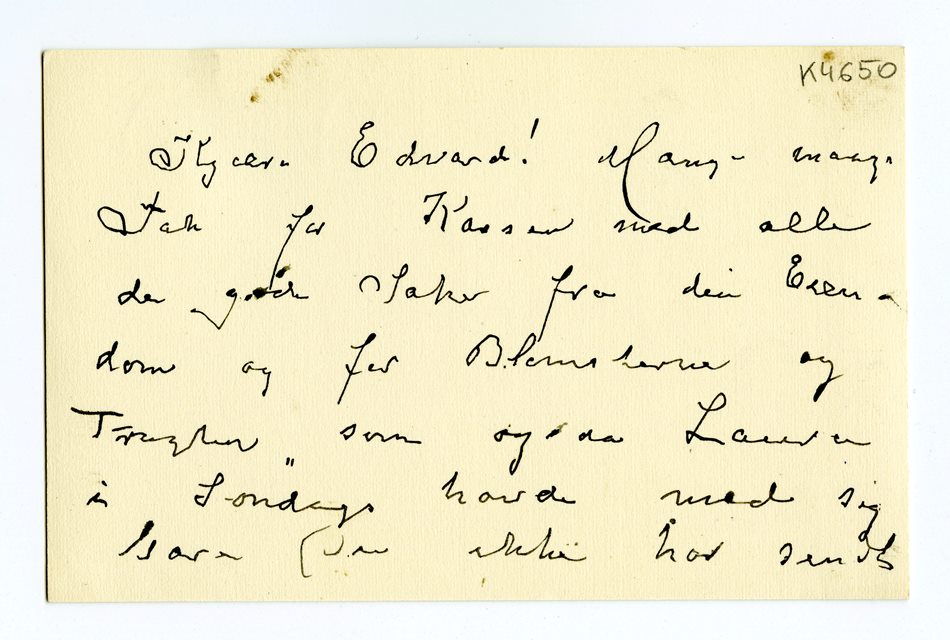 K4650
Kjære Edvard! Mange mange
Tak for Kassen med alle
de gode Saker fra din Eien-
dom og for Blomsterne og
Frugten, som ogsaa Laura
i Søndags havde med sig
bare Du ikke har sendt